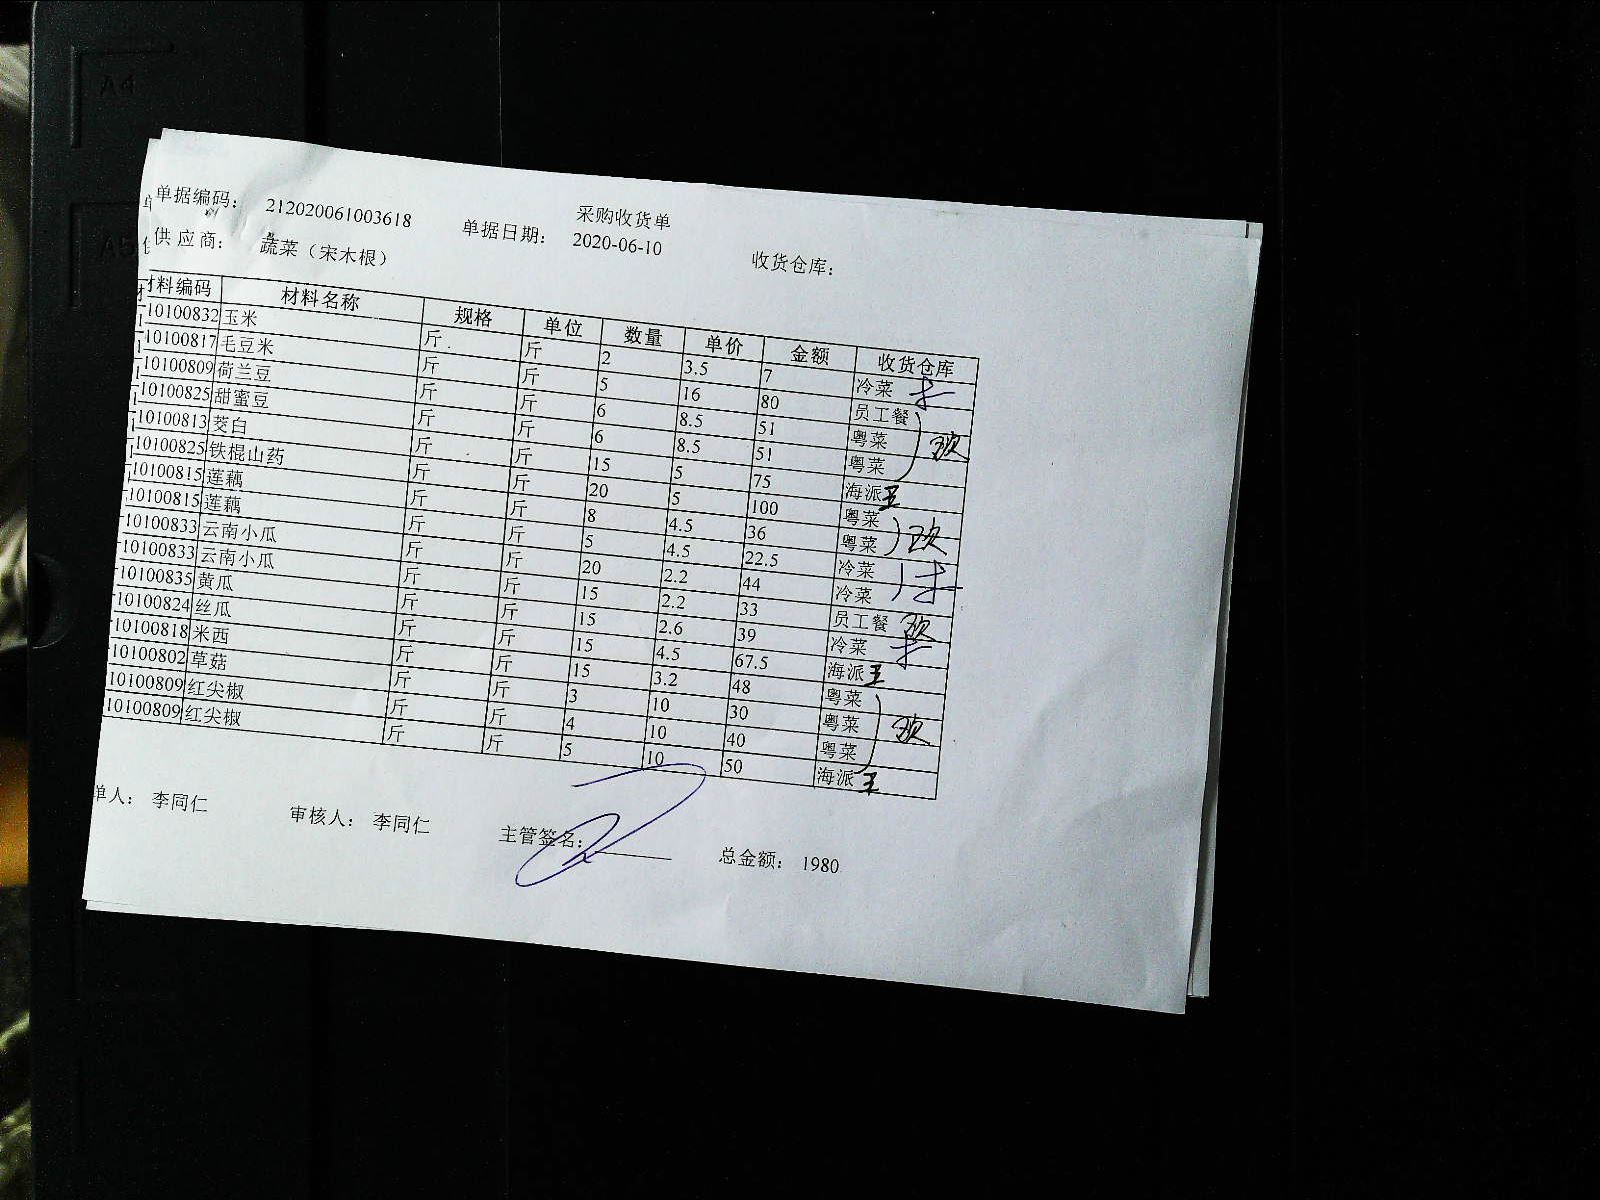 采购收货单
单据编码： 212020061003618 单据日期： 2020-06-10 收货仓库：
供应商： 蔬菜（宋木根）
材料编码 材料名称 规格 单位 数量 单价 金额 收货仓库
10100832 玉米 斤 斤 2 3.5 7 冷菜
10100817 毛豆米 斤 斤 5 16 80 员工餐
10100809 荷兰豆 斤 斤 6 8.5 51 粤菜
10100825 甜蜜豆 斤 斤 6 8.5 51 粤菜
10100813 茭白 斤 斤 15 5 75 海派 王
10100825 铁棍山药 斤 斤 20 5 100 粤菜
10100815 莲藕 斤 斤 8 4.5 36 粤菜
10100815 莲藕 斤 斤 5 4.5 22.5 冷菜
10100833 云南小瓜 斤 斤 20 2.2 44 冷菜
10100833 云南小瓜 斤 斤 15 2.2 33 员工餐
10100835 黄瓜 斤 斤 15 2.6 39 冷菜
10100824 丝瓜 斤 斤 15 4.5 67.5 海派 王
10100818 米西 斤 斤 15 3.2 48 粤菜
10100802 草菇 斤 斤 3 10 30 粤菜
10100809 红尖椒 斤 斤 4 10 40 粤菜
10100809 红尖椒 斤 斤 5 10 50 海派 王
单人： 李同仁 审核人： 李同仁 主管签名： 总金额： 1980
A4
A5